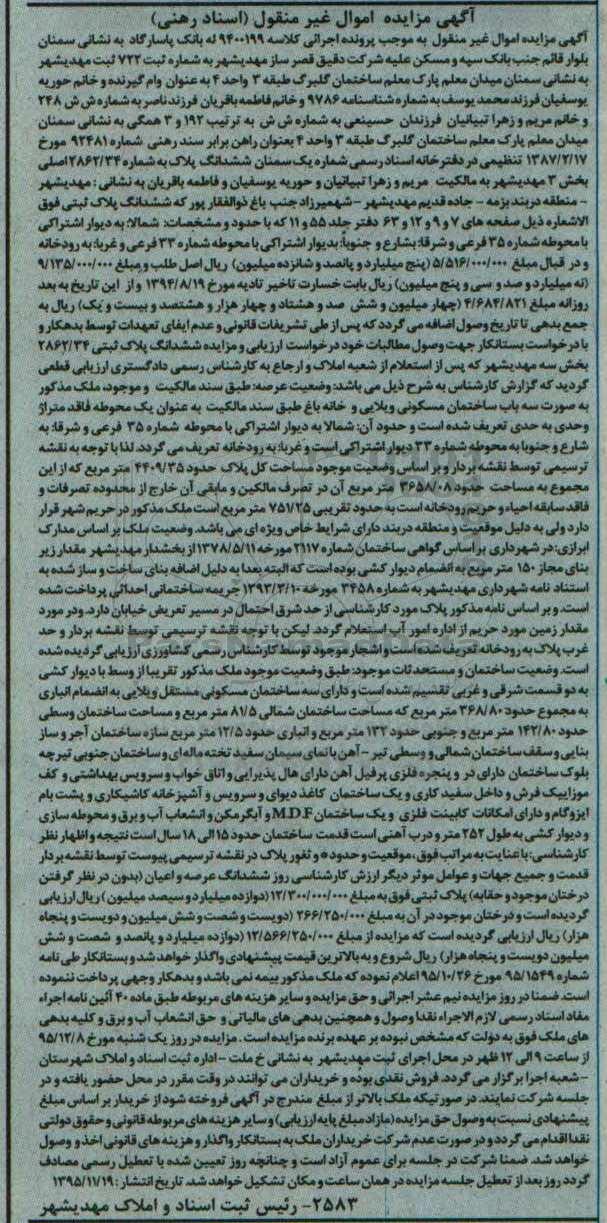 آگهی مزایده اموال غیر منقول (اسناد رهنی)
آگهی مزایده اموال غیر منقول به موجب پرونده اجرائی کلاسه ۹۴۰۰۱۹۹ له بانک پاسارگاد به نشانی سمنان
بلوار قائم جنب بانک سپه و مسکن علیه شرکت دقیق قصر ساز مهدیشهر به شماره ثبت ۷۲۲ ثبت مهدیشهر
به نشانی سمنان میدان معلم پارک معلم ساختمان گلبرگ طبقه ۳ واحد ۴ به عنوان وام گیرنده و خانم حوریه
یوسفیان فرزند محمد یوسف به شماره شناسنامه ۹۷۸۶ و خانم فاطمه باقریان فرزند ناصر به شماره ش ش ۲۴۸
و خانم مریم و زهرا تبیانیان فرزندان حسینعی به شماره ش ش به ترتیب ۱۹۲ و ۳ همگی به نشانی سمنان
میدان معلم پارک معلم ساختمان گلبرگ طبقه ۳ واحد ۴ بعنوان راهن برابر سند رهنی شماره ۹۲۴۸۱ مورخ
۱۳۸۷/۲/۱۷ تنظیمی در دفترخانه اسناد رسمی شماره یک سمنان ششدانگ پلاک به شماره ۲۸۶۲/۳۴ اصلی
بخش ۳ مهدیشهر به مالکیت مریم و زهرا تبیانیان و حوریه یوسفیان و فاطمه باقریان به نشانی : مهدیشهر
- منطقه دربند بزمه - جاده قدیم مهدیشهر - شهمیرزاد جنب باغ ذوالفقار پور که ششدانگ پلاک ثبتی فوق
الاشعاره ذیل صفحه های ۷ و ۹ و ۱۲ و ۶۳ دفتر جلد ۵۵ و ۱۱ که با حدود و مشخصات: شمالا: به دیوار اشتراکی
با محوطه شماره ۳۵ فرعی و شرقا: بشارع و جنوبا: بدیوار اشتراکی با محوطه شماره ۳۳ فرعی و غربا: به رودخانه
و در قبال مبلغ ۵/۵۱۶/۰۰۰/۰۰۰ (پنج میلیارد و پانصد و شانزده میلیون) ریال اصل طلب و مبلغ ۹/۱۳۵/۰۰۰/۰۰۰
(نه میلیارد و صد و سی و پنج میلیون) ریال بابت خسارت تاخیر تادیه مورخ ۱۳۹۴/۸/۱۹ و از این تاریخ به بعد
روزانه مبلغ ۴/۶۸۴/۸۲۱ (چهار میلیون و شش صد و هشتاد و چهار هزار و هشتصد و بیست و یک) ریال به
جمع بدهی تا تاریخ وصول اضافه می گردد که پس از طی تشریفات قانونی و عدم ایفای تعهدات توسط بدهکار و
با درخواست بستانکار جهت وصول مطالبات خود درخواست ارزیابی و مزایده ششدانگ پلاک ثبتی ۲۸۶۲/۳۴
بخش سه مهدیشهر که پس از استعلام از شعبه املاک و ارجاع به کارشناس رسمی دادگستری ارزیابی قطعی
گردید که گزارش کارشناس به شرح ذیل می باشد: وضعیت عرصه: طبق سند مالکیت و موجود، ملک مذکور
به صورت سه باب ساختمان مسکونی ویلایی و خانه باغ طبق سند مالکیت به عنوان یک محوطه فاقد متراژ
وحدی به حدی تعریف شده است و حدود آن: شمالا به دیوار اشتراکی با محوطه شماره ۳۵ فرعی و شرقا: به
شارع و جنوبا به محوطه شماره ۳۳ دیوار اشتراکی است و غربا: به رودخانه تعریف می گردد. لذا با توجه به نقشه
ترسیمی توسط نقشه بردار و بر اساس وضعیت موجود مساحت کل پلاک حدود ۴۴۰۹/۳۵ متر مربع که از این
مجموع به مساحت حدود ۳۶۵۸/۰۸ متر مربع آن در تصرف مالکین و مابقی آن خارج از محدوده تصرفات و
فاقد سابقه احیاء و حریم رودخانه است به حدود تقریبی ۷۵۱/۲۵ متر مربع است ملک مذکور در حریم شهر قرار
دارد ولی به دلیل موقعیت و منطقه دربند دارای شرایط خاص ویژه ای می باشد. وضعیت ملک بر اساس مدارک
ابرازی: در شهرداری بر اساس گواهی ساختمان شماره ۲۱۱۷ مورخه ۱۳۷۸/۵/۱۱ از بخشدار مهدیشهر مقدار زیر
بنای مجاز ۱۵۰ متر مربع به انضمام دیوار کشی بوده است که البته بعدا به دلیل اضافه بنای ساخت و ساز شده به
استناد نامه شهرداری مهدیشهر به شماره ۳۴۵۸ مورخه ۱۳۹۳/۳/۱۰ جریمه ساختمانی احداثی پرداخت شده
است. و بر اساس نامه مذکور پلاک مورد کارشناسی از حد شرق احتمال در مسیر تعریض خیابان دارد. و در مورد
مقدار زمین مورد حریم از اداره امور آب استعلام گردد. لیکن با توجه نقشه ترسیمی توسط نقشه بردار و حد
غرب پلاک به رودخانه تعریف شده است و اشجار موجود توسط کارشناس رسمی کشاورزی ارزیابی گردیده شده
است. وضعیت ساختمان و مستحدثات موجود: طبق وضعیت موجود ملک مذکور تقریبا از وسط با دیوار کشی
به دو قسمت شرقی و غربی تقسیم شده است و دارای سه ساختمان مسکونی مستقل ویلایی به انضمام انباری
به مجموع حدود ۳۶۸/۸۰ متر مربع که مساحت ساختمان شمالی ۸۱/۵ متر مربع و مساحت ساختمان وسطی
حدود ۱۴۲/۸۰ متر مربع و جنوبی حدود ۱۳۲ متر مربع و انباری حدود ۱۲/۵ متر مربع سازه ساختمان آجر و ساز
بنایی و سقف ساختمان شمالی و وسطی تیر - آهن با نمای سیمان سفید تخته ماله ای و ساختمان جنوبی تیرچه
بلوک ساختمان دارای در و پنجره فلزی پرفیل آهن دارای هال پذیرایی و اتاق خواب و سرویس بهداشتی و کف
موزاییک فرش و داخل سفید کاری و یک ساختمان کاغذ دیوای و سرویس و آشپزخانه کاشیکاری و پشت بام
ایزوگام و دارای امکانات کابینت فلزی و یک ساختمان M.D.F و آبگرمکن و انشعاب آب و برق و محوطه سازی
و دیوار کشی به طول ۲۵۲ متر و درب آهنی است قدمت ساختمان حدود ۱۵ الی ۱۸ سال است نتیجه و اظهار نظر
کارشناسی: با عنایت به مراتب فوق، موقعیت و حدود و ثغور پلاک در نقشه ترسیمی پیوست توسط نقشه بردار
قدمت و جمیع جهات و عوامل موثر دیگر ارزش کارشناسی روز ششدانگ عرصه و اعیان (بدون در نظر گرفتن
درختان موجود و حقابه) پلاک ثبتی فوق به مبلغ ۱۲/۳۰۰/۰۰۰/۰۰۰ (دوازده میلیارد و سیصد میلیون) ریال ارزیابی
گردیده است و درختان موجود در آن به مبلغ ۲۶۶/۲۵۰/۰۰۰ (دویست و شصت و شش میلیون و دویست و پنجاه
هزار) ریال ارزیابی گردیده است که مزایده از مبلغ ۱۲/۵۶۶/۲۵۰/۰۰۰ (دوازده میلیارد و پانصد و شصت و شش
میلیون دویست و پنجاه هزار) ریال شروع و به بالاترین قیمت پیشنهادی واگذار خواهد شد و بستانکار طی نامه
شماره ۹۵/۱۵۴۹ مورخ ۹۵/۱۰/۲۶ اعلام نموده که ملک مذکور بیمه نمی باشد و بدهکار وجهی پرداخت ننموده
است. ضمنا در روز مزایده نیم عشر اجرائی و حق مزایده و سایر هزینه های مربوطه طبق ماده ۴۰ آئین نامه اجراء
مفاد اسناد رسمی لازم الاجراء نقدا وصول و همچنین بدهی های مالیاتی و حق انشعاب آب و برق و کلیه بدهی
های ملک فوق به دولت که مشخص نبوده بر عهده برنده مزایده است . مزایده در روز یک شنبه مورخ ۹۵/۱۲/۸
از ساعت ۹ الی ۱۲ ظهر در محل اجرای ثبت مهدیشهر به نشانی خ ملت - اداره ثبت اسناد و املاک شهرستان
- شعبه اجرا برگزار می گردد. فروش نقدی بوده و خریداران می توانند در وقت مقرر در محل حضور یافته و در
جلسه شرکت نمایند. در صورتیکه ملک بالاتر از مبلغ مندرج در آگهی فروخته شود از خریدار بر اساس مبلغ
پیشنهادی نسبت به وصول حق مزایده (مازاد مبلغ پایه ارزیابی) و سایر هزینه های مربوطه قانونی و حقوق دولتی
نقدا اقدام می گردد و در صورت عدم شرکت خریداران ملک به بستانکار واگذار و هزینه های قانونی اخذ و وصول
خواهد شد. ضمنا شرکت در جلسه برای عموم آزاد است و چنانچه روز تعیین شده با تعطیل رسمی مصادف
گردد روز بعد از تعطیل جلسه مزایده در همان ساعت و مکان تشکیل خواهد شد. تاریخ انتشار : ۱۳۹۵/۱۱/۱۹
۲۵۸۳- رئیس ثبت اسناد و املاک مهدیشهر